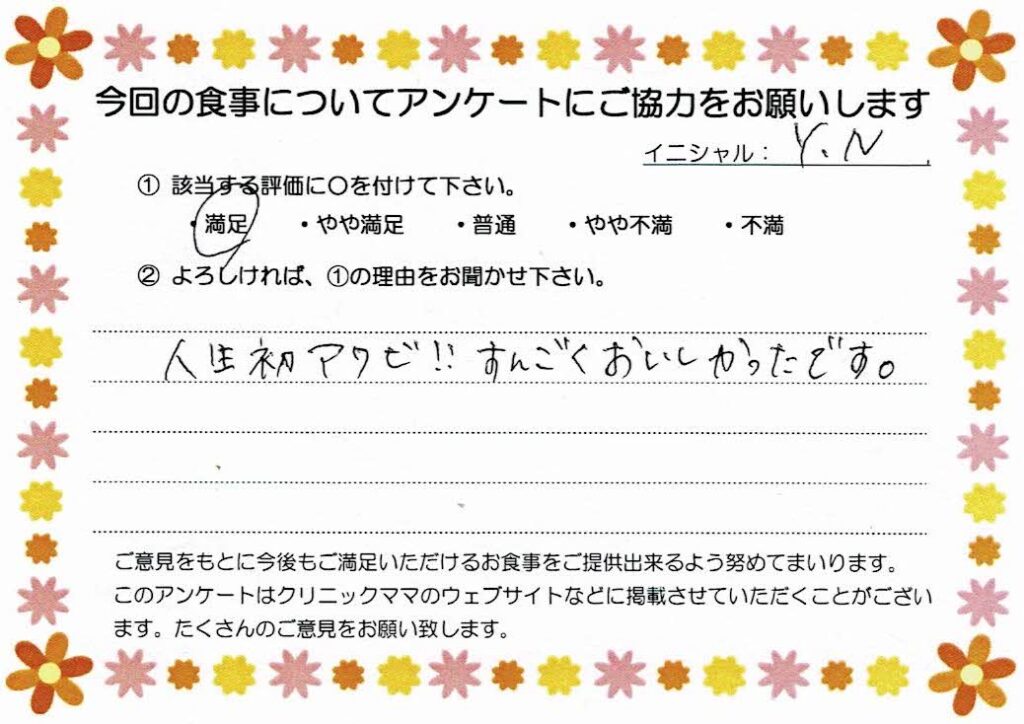 今回の食事についてアンケートにご協力をお願いします
イニシャル： Y.N
① 該当する評価に〇を付けて下さい。
・満足 ・やや満足 ・普通 ・やや不満 ・不満
② よろしければ、①の理由をお聞かせ下さい。
人生初アワビ!! すんごくおいしかったです。
ご意見をもとに今後もご満足いただけるお食事をご提供出来るよう努めてまいります。
このアンケートはクリニックママのウェブサイトなどに掲載させていただくことがござい
ます。たくさんのご意見をお願い致します。